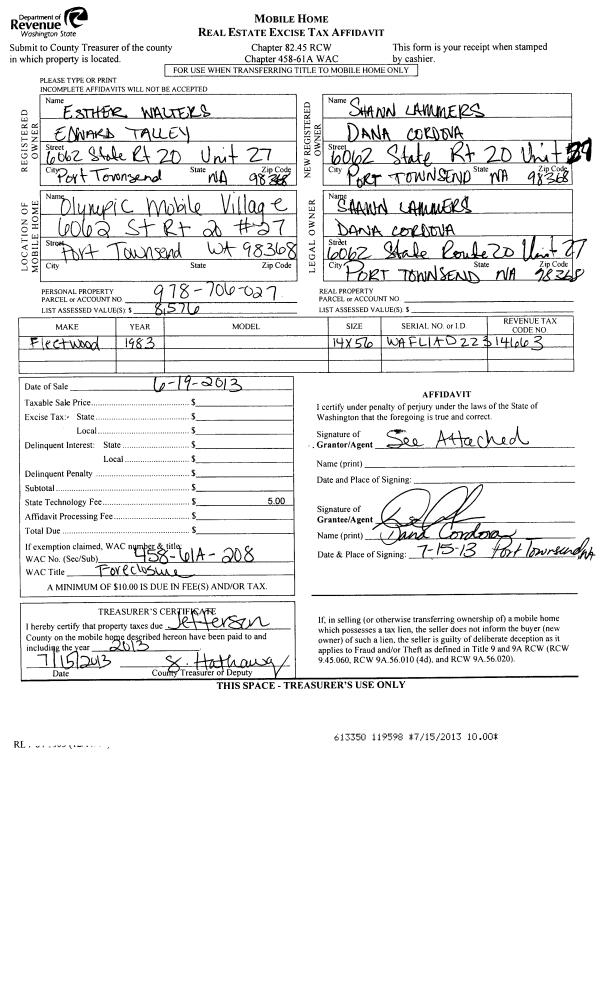 Department of
Revenue
Washington State
MOBILE HOME
REAL ESTATE EXCISE TAX AFFIDAVIT
Submit to County Treasurer of the county
in which property is located.
Chapter 82.45 RCW
Chapter 458-61A WAC
This form is your receipt when stamped
by cashier.
FOR USE WHEN TRANSFERRING TITLE TO MOBILE HOME ONLY
PLEASE TYPE OR PRINT
INCOMPLETE AFFIDAVITS WILL NOT BE ACCEPTED
REGISTERED OWNER
Name
ESTHER WALTERS
EDWARD TALLEY
Street
6062 State Rt 20 Unit 27
City State Zip Code
Port Townsend WA 98368
NEW REGISTERED OWNER
Name
SHAWN LAMMERS
DANA CORDOVA
Street
6062 State Rt 20 Unit
City State Zip Code
PORT TOWNSEND WA 98368
LOCATION OF MOBILE HOME
Name
Olympic Mobile Village
6062 St Rt 20 #27
Street
Port Townsend WA 98368
City State Zip Code
LEGAL OWNER
Name
SHAWN LAMMERS
DANA CORDOVA
Street
6062 State Route 20 Unit 27
City State Zip Code
PORT TOWNSEND WA 98368
PERSONAL PROPERTY
PARCEL or ACCOUNT NO. 978-706-027
LIST ASSESSED VALUE(S): $ 8,576
REAL PROPERTY
PARCEL or ACCOUNT NO.
LIST ASSESSED VALUE(S): $
MAKE YEAR MODEL SIZE SERIAL NO. or I.D. REVENUE TAX CODE NO.
Fleetwood 1983 14x56 WAFL1AD22314663
Date of Sale 6-19-2013
Taxable Sale Price $
Excise Tax: State $
Local $
Delinquent Interest: State $
Local $
Delinquent Penalty $
Subtotal $
State Technology Fee $ 5.00
Affidavit Processing Fee $
Total Due $
If exemption claimed, WAC number & title:
WAC No. (Sec/Sub) 458-61A-208
WAC Title Foreclosure
A MINIMUM OF $10.00 IS DUE IN FEE(S) AND/OR TAX.
AFFIDAVIT
I certify under penalty of perjury under the laws of the State of
Washington that the foregoing is true and correct.
Signature of
Grantor/Agent See Attached
Name (print)
Date and Place of Signing:
Signature of
Grantee/Agent
Name (print) Dana Cordova
Date & Place of Signing: 7-15-13 Port Townsend WA
TREASURER'S CERTIFICATE
I hereby certify that property taxes due Jefferson
County on the mobile home described hereon have been paid to and
including the year 2013
7/15/2013 S. Hathaway
Date County Treasurer or Deputy
If, in selling (or otherwise transferring ownership of) a mobile home
which possesses a tax lien, the seller does not inform the buyer (new
owner) of such a lien, the seller is guilty of deliberate deception as it
applies to Fraud and/or Theft as defined in Title 9 and 9A RCW (RCW
9.45.060, RCW 9A.56.010 (4d), and RCW 9A.56.020).
THIS SPACE - TREASURER'S USE ONLY
613350 119598 *7/15/2013 10.00*